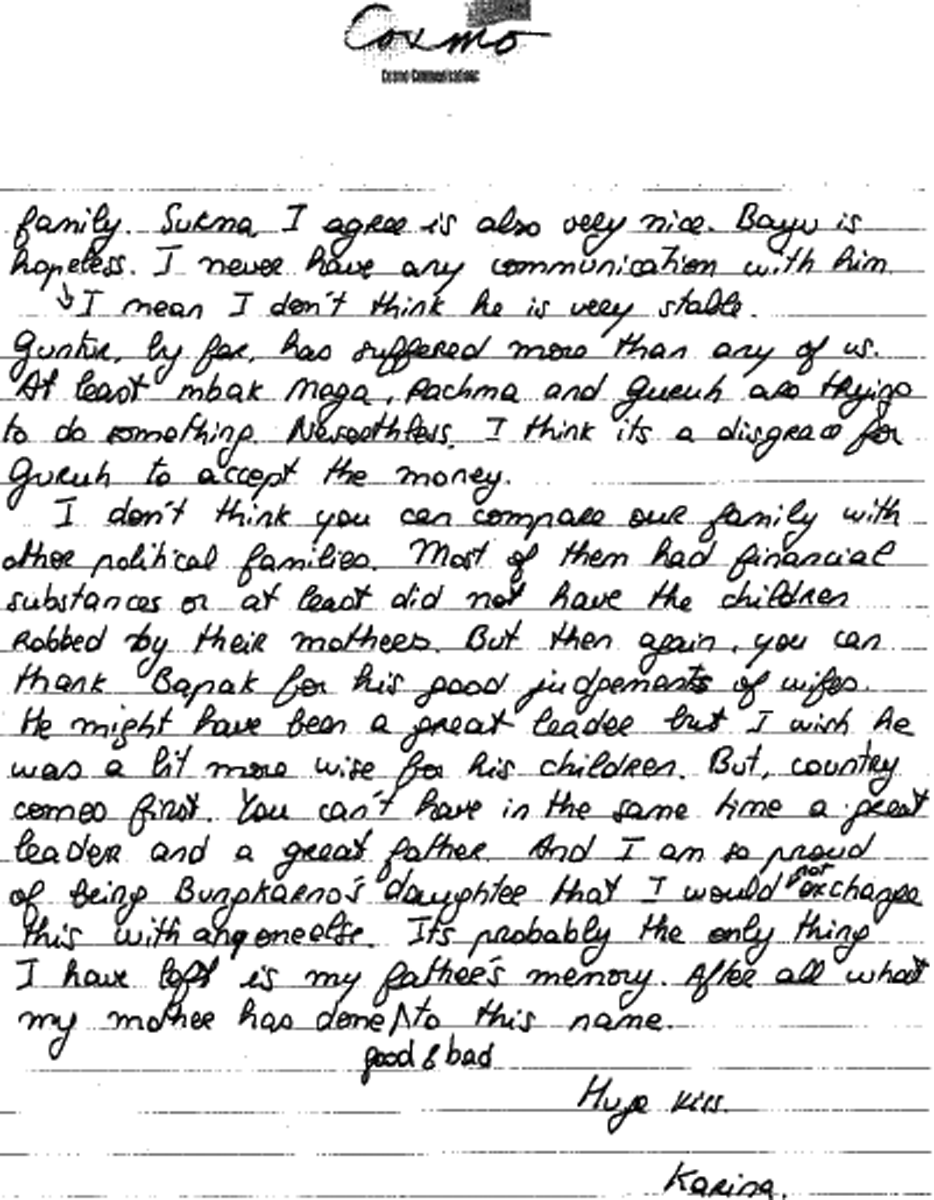 Cosmo
Cosmo Communications
family. Sukma I agree is also very nice. Bayu is
hopeless. I never have any communication with him.
↳ I mean I don't think he is very stable.
Guntur, by far, has suffered more than any of us.
At least mbak Mega, Rachma and Guruh are trying
to do something. Neverthless, I think its a disgrace for
Guruh to accept the money.
I don't think you can compare our family with
other political families. Most of them had financial
substances or at least did not have the children
robbed by their mothers. But then again, you can
thank Bapak for his good judgements of wifes.
He might have been a great leader but I wish he
was a bit more wise for his children. But, country
comes first. You can't have in the same time a great
leader and a great father. And I am so proud
of being Bungkarno's daughter that I would not exchange
this with anyoneelse. Its probably the only thing
I have left is my father's memory. After all what
my mother has done to this name.
good & bad
Huge kiss.
Karina.